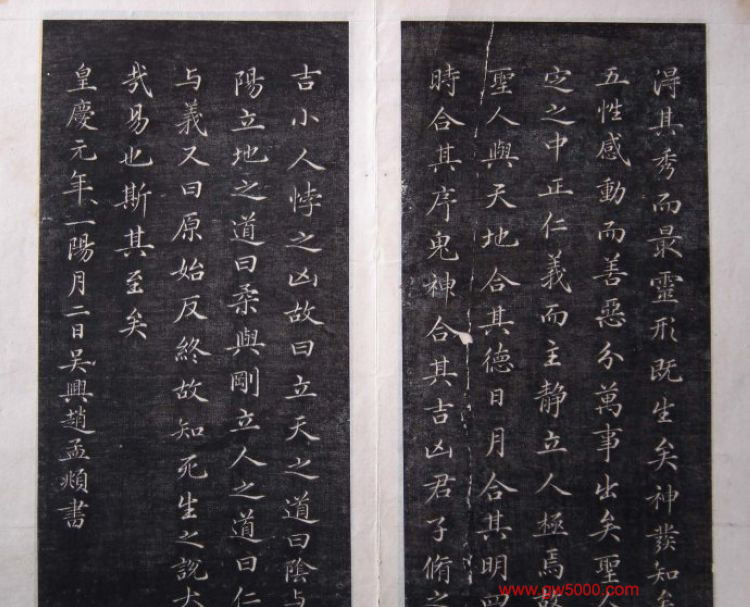 淂其秀而最靈形既生矣神發知矣
五性感動而善惡分萬事出矣聖人
定之中正仁義而主静立人極焉故
聖人與天地合其德日月合其明四
時合其序鬼神合其吉凶君子脩之
吉小人悖之凶故曰立天之道曰陰与
陽立地之道曰柔與剛立人之道曰仁
与義又曰原始反終故知死生之說大
哉易也斯其至矣
皇慶元年一陽月二日吴興趙孟頫書
www.gw5000.com